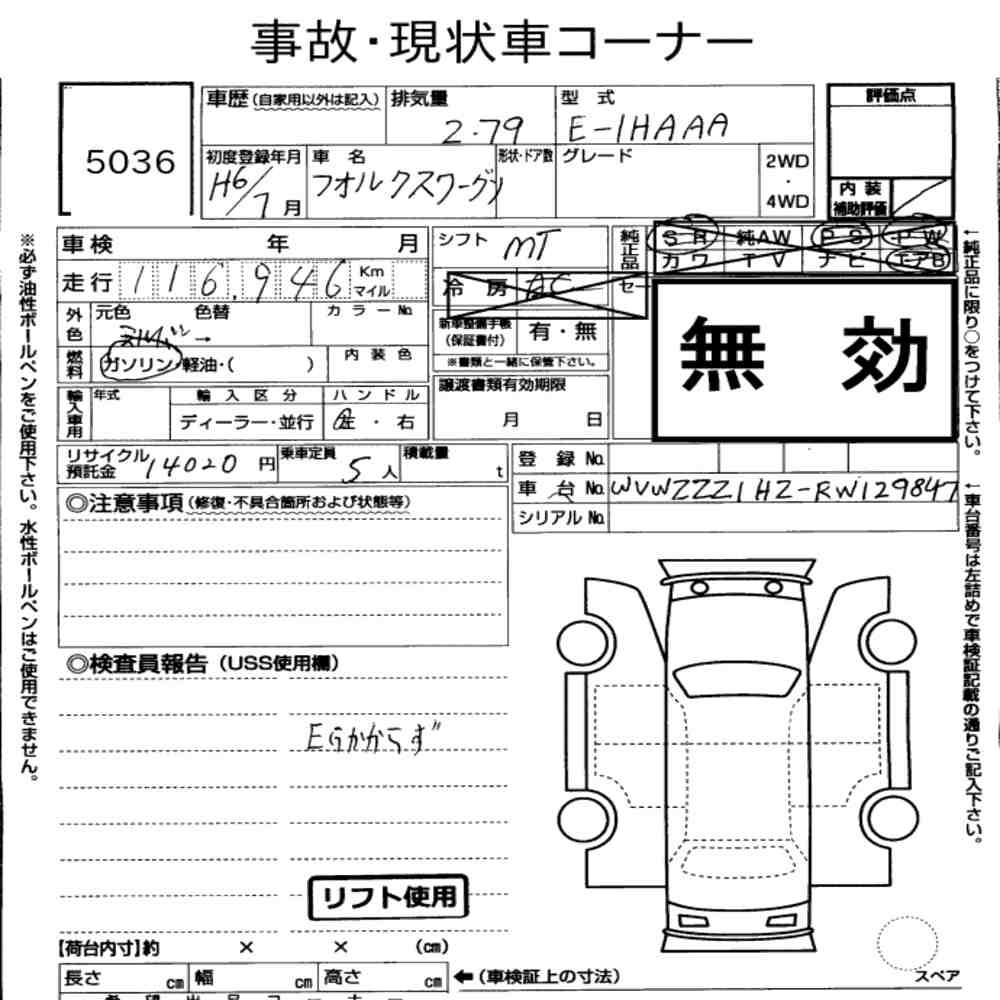 事故・現状車コーナー
5036
車歴 (自家用以外は記入)
排気量
2.79
型 式
E-1HAAA
評価点
初度登録年月
H6/7月
車 名
フォルクスワーゲン
形状・ドア数
グレード
2WD
・
4WD
内装
補助評価
車検 年 月
シフト
MT
純正品
SR 純AW PS PW
カワ TV ナビ エアB
走行 116,946 Km
マイル
冷房 AC
セー
無 効
外色
元色 色替
カラーNo.
→
新車整備手帳
(保証書付)
有・無
※書類と一緒に保管下さい。
燃料
ガソリン・軽油・( )
内装色
譲渡書類有効期限
月 日
輸入車用
年式
輸入区分
ディーラー・並行
ハンドル
左・右
リサイクル
預託金 14020 円
乗車定員
5人
積載量
t
登録No.
車台No. WVWZZZ1HZ-RW129847
シリアルNo.
◎注意事項 (修復・不具合箇所および状態等)
◎検査員報告 (USS使用欄)
EGかからず
リフト使用
【荷台内寸】約 × × (cm)
長さ cm 幅 cm 高さ cm ←(車検証上の寸法)
スペア
希望出品コーナー
※必ず油性ボールペンをご使用下さい。水性ボールペンはご使用できません。
←純正品に限り○をつけて下さい。
←車台番号は左詰めで車検証記載の通りご記入下さい。